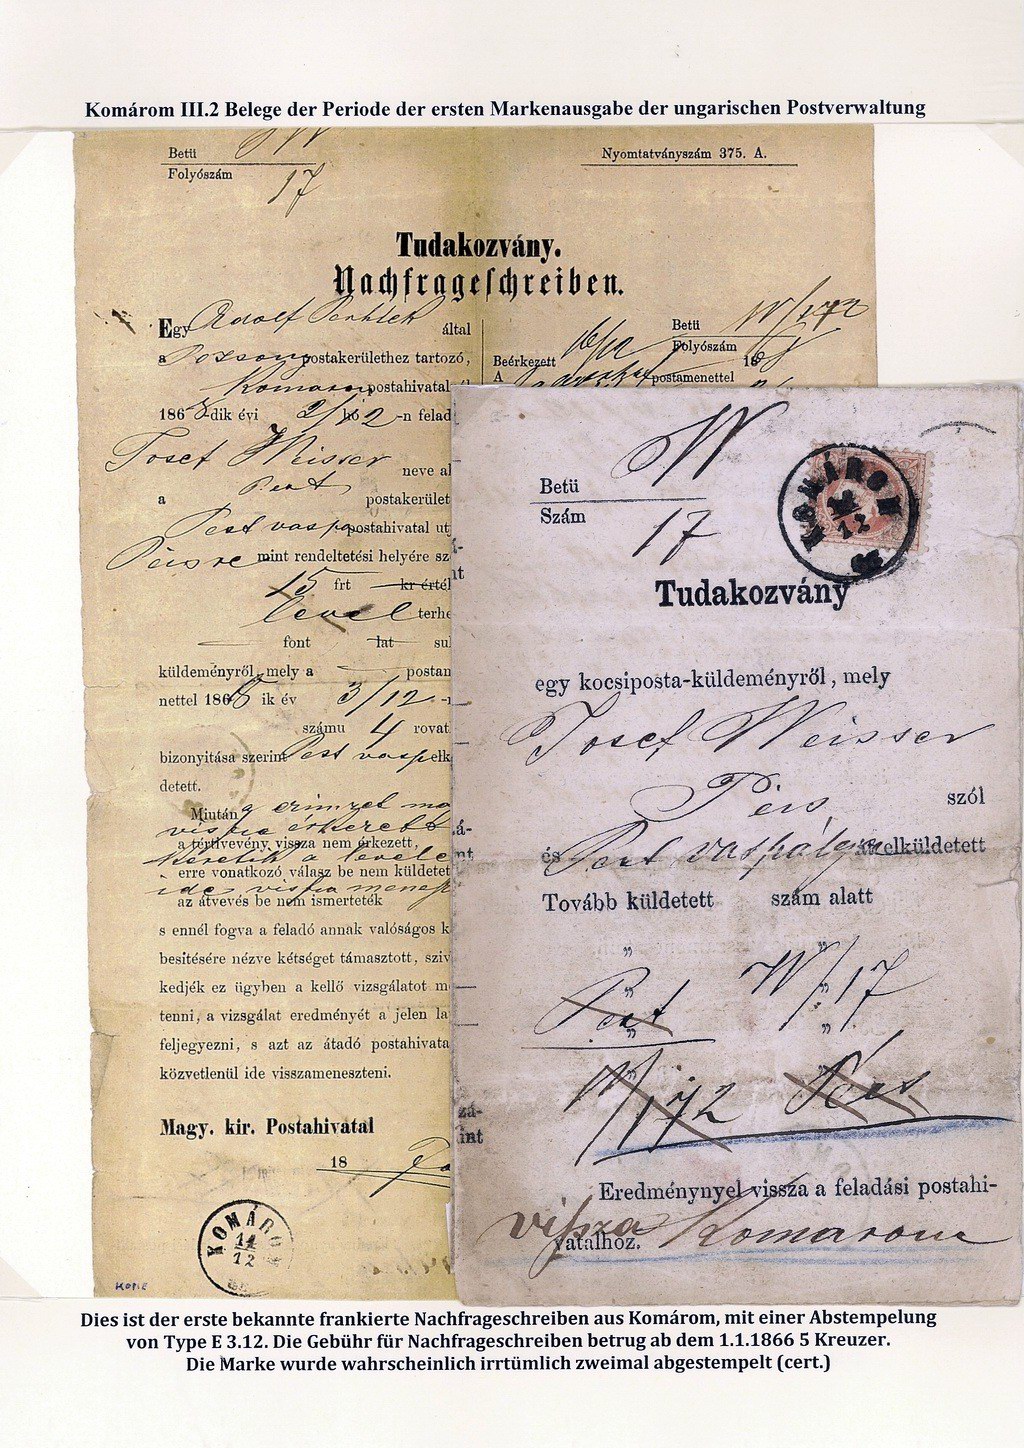 Komárom III.2 Belege der Periode der ersten Markenausgabe der ungarischen Postverwaltung
Betü W
Folyószám 17
Nyomtatványszám 375. A.
Tudakozvány.
Nachfrageschreiben.
Egy Adolf által
a Pozsony postakerülethez tartozó,
Komárom postahivatal
186 -dik évi hó 2-n felad
Josef Weisser neve al
a Pest postakerület
Pest vasp postahivatal ut
mint rendeltetési helyére sz
15 frt kr érték
level terhe
font lat su
küldeményről, mely a postan
nettel 1868 ik év 3/12
számu 4 rovat
bizonyitása szerint Pest vaspelk
detett.
Miután a czimzet
vissza érkezett
a tértivevény vissza nem érkezett,
kéretik a levele
erre vonatkozó válasz be nem küldetet
ide vissza
az átvevés be nem ismerteték
s ennél fogva a feladó annak valóságos k
besitésére nézve kétséget támasztott, sziv
kedjék ez ügyben a kellő vizsgálatot m
tenni, a vizsgálat eredményét a jelen la
feljegyezni, s azt az átadó postahivata
közvetlenül ide visszameneszteni.
Magy. kir. Postahivatal
18
KOMÁRO
12
KOPIE
Betü W/172
Folyószám
Beérkezett 16/12 18
A postamenettel
Betü W
Szám 17
KOMÁROM
12
Tudakozvány
egy kocsiposta-küldeményről, mely
Josef Weisser
Pécs szól
és Pest vaspályán elküldetett
Tovább küldetett szám alatt
„ „
Pest W/17
„ „
W/172 Pécs
Eredménynyel vissza a feladási postahi-
vatalhoz.
vissza Komarom
Dies ist der erste bekannte frankierte Nachfrageschreiben aus Komárom, mit einer Abstempelung
von Type E 3.12. Die Gebühr für Nachfrageschreiben betrug ab dem 1.1.1866 5 Kreuzer.
Die Marke wurde wahrscheinlich irrtümlich zweimal abgestempelt (cert.)